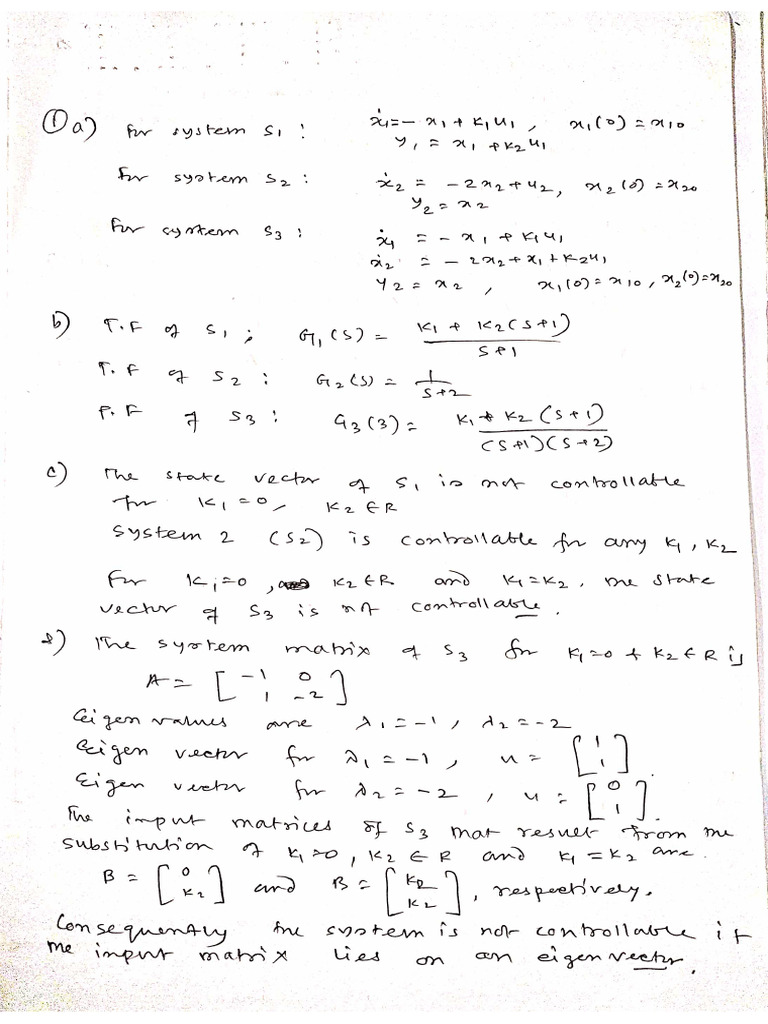 ① a) For system S1 : ẋ1 = - x1 + K1 u1 , x1(0) = x10
y1 = x1 + K2 u1
For system S2 : ẋ2 = - 2x2 + u2, x2(0) = x20
y2 = x2
For system S3 : ẋ1 = - x1 + K1 u1
ẋ2 = - 2x2 + x1 + K2 u1
y2 = x2 , x1(0) = x10 , x2(0) = x20
b) T.F of S1 ; G1(s) = K1 + K2(s+1) / s+1
T.F of S2 : G2(s) = 1 / s+2
T.F of S3 : G3(3) = K1 + K2 (s+1) / (s+1)(s+2)
c) The state vector of S1 is not controllable
for K1 = 0, K2 ∈ R
System 2 (S2) is controllable for any K1, K2
For K1 = 0, K2 ∈ R and K1 = K2, the state
vector of S3 is not controllable.
d) The system matrix of S3 for K1 = 0 & K2 ∈ R is
A = [ -1 0
1 -2 ]
Eigen values are λ1 = -1, λ2 = -2
Eigen vector for λ1 = -1, u = [ 1
1 ].
Eigen vector for λ2 = -2, u = [ 0
1 ].
The input matrices of S3 that result from the
substitution of K1 = 0, K2 ∈ R and K1 = K2 are.
B = [ 0
K2 ] and B = [ K2
K2 ], respectively.
Consequently the system is not controllable if
the input matrix lies on an eigen vector.